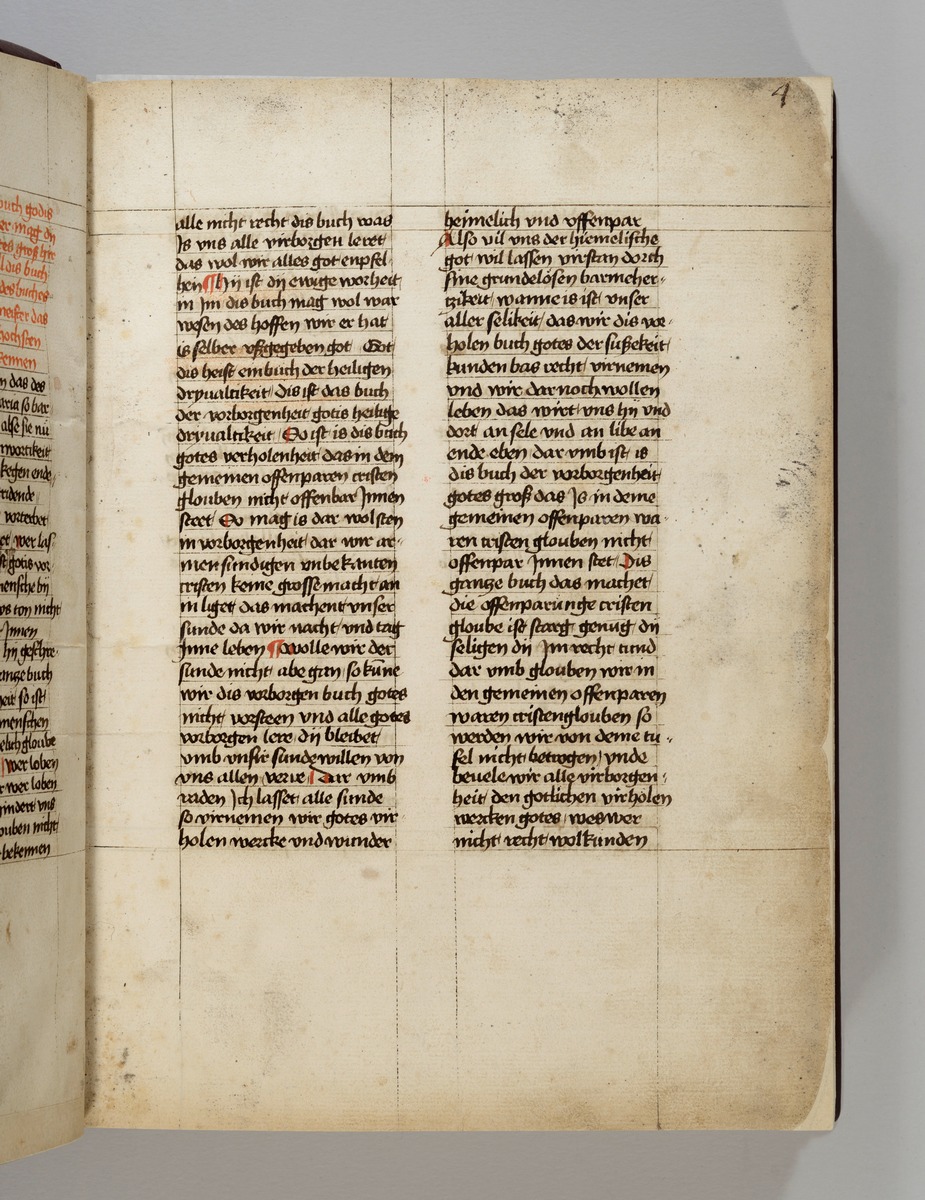 4
buch godis
er mag dy
l dis buch
des buches
meister das
hochsten
kennen
n das des
aria so bar
alse sie nu
kegen ende
vorterbet
et wer las
mensche by
us ton nicht
Innen
ganze buch
heit so ist
menschen
elich gloube
wer loben
r wer loben
hindert vns
ouben nicht
bekennen
alle nicht recht dis buch was
Is vns alle virborgen leret
das wol wir alles got enpfel
hen ¶ hy ist dy ewige worheit
in Im dis buch mag wol war
wesen des hoffen wir er hat
is selber vßgegeben got Got
dis heist ein buch der heiligen
dryualtikeit dis ist das buch
der vorborgenheit gotis heilige
dryualtikeit So ist is dis buch
gotes verholenheit das in dem
gemeinen offenparen cristen
glouben nicht offenbar Innen
steet So mag is dar wol sten
in vorborgenheit dar wir ar
men sundigen vnbekanten
cristen keine grosse macht an
in liget das machent vnser
sunde da wir nacht vnd tag
Inne leben ¶ wolle wir der
sunde nicht abe gan so kune
wir dis vorborgen buch gotes
nicht vorsteen vnd alle gotes
vorborgen lere dy bleibet
vmb vnsir sunde willen von
vns allen Dar vmb
raden Ich lasset alle sunde
so virnemen wir gotes vir
holen wercke vnd wunder
heimelich vnd vffenpar
Also vil vns der hiemelische
got wil lassen virstan dorch
sine grundelosen barmeher
tzikeit wanne is ist vnser
aller selikeit das wir dis vor
holen buch gotes der sußekeit
kunden bas recht virnemen
vnd wir dar noch wollen
leben das wirt vns hy vnd
dort an sele vnd an libe an
ende eben dar vmb ist is
dis buch der vorborgenheit
gotes groß das Is in deme
gemeinen offenparen wa
ren cristen glouben nicht
offenpar Innen stet Dis
ganze buch das machet
die offenparunge cristen
gloube ist starg genug dy
seligen dy Im recht tund
dar vmb glouben wir in
den gemeinen offenparen
waren cristenglouben so
werden wir von deme tu
fel nicht betrogen vnde
beuele wir alle virborgen
heit den gotlichen virholen
wercken gotes wes wer
nicht recht wol kunden